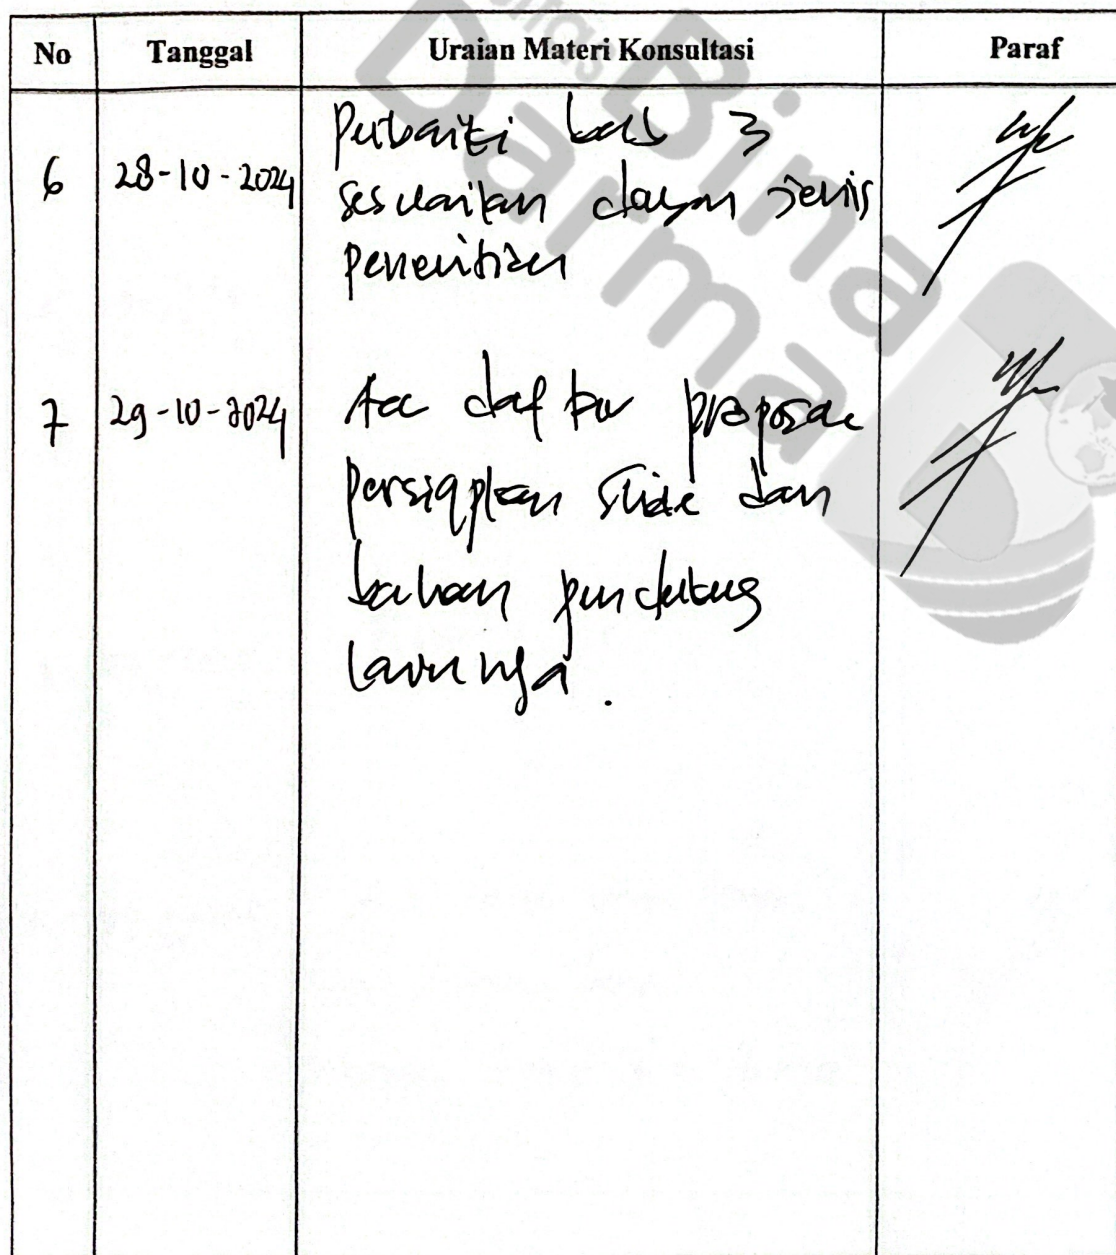 No Tanggal Uraian Materi Konsultasi Paraf
6 28-10-2024 Perbaiki bab 3
sesuaikan dengan jenis
penelitian
7 29-10-2024 Acc daftar proposal
persiapkan slide dan
bahan pendukung
lainnya.
Bina
Darma